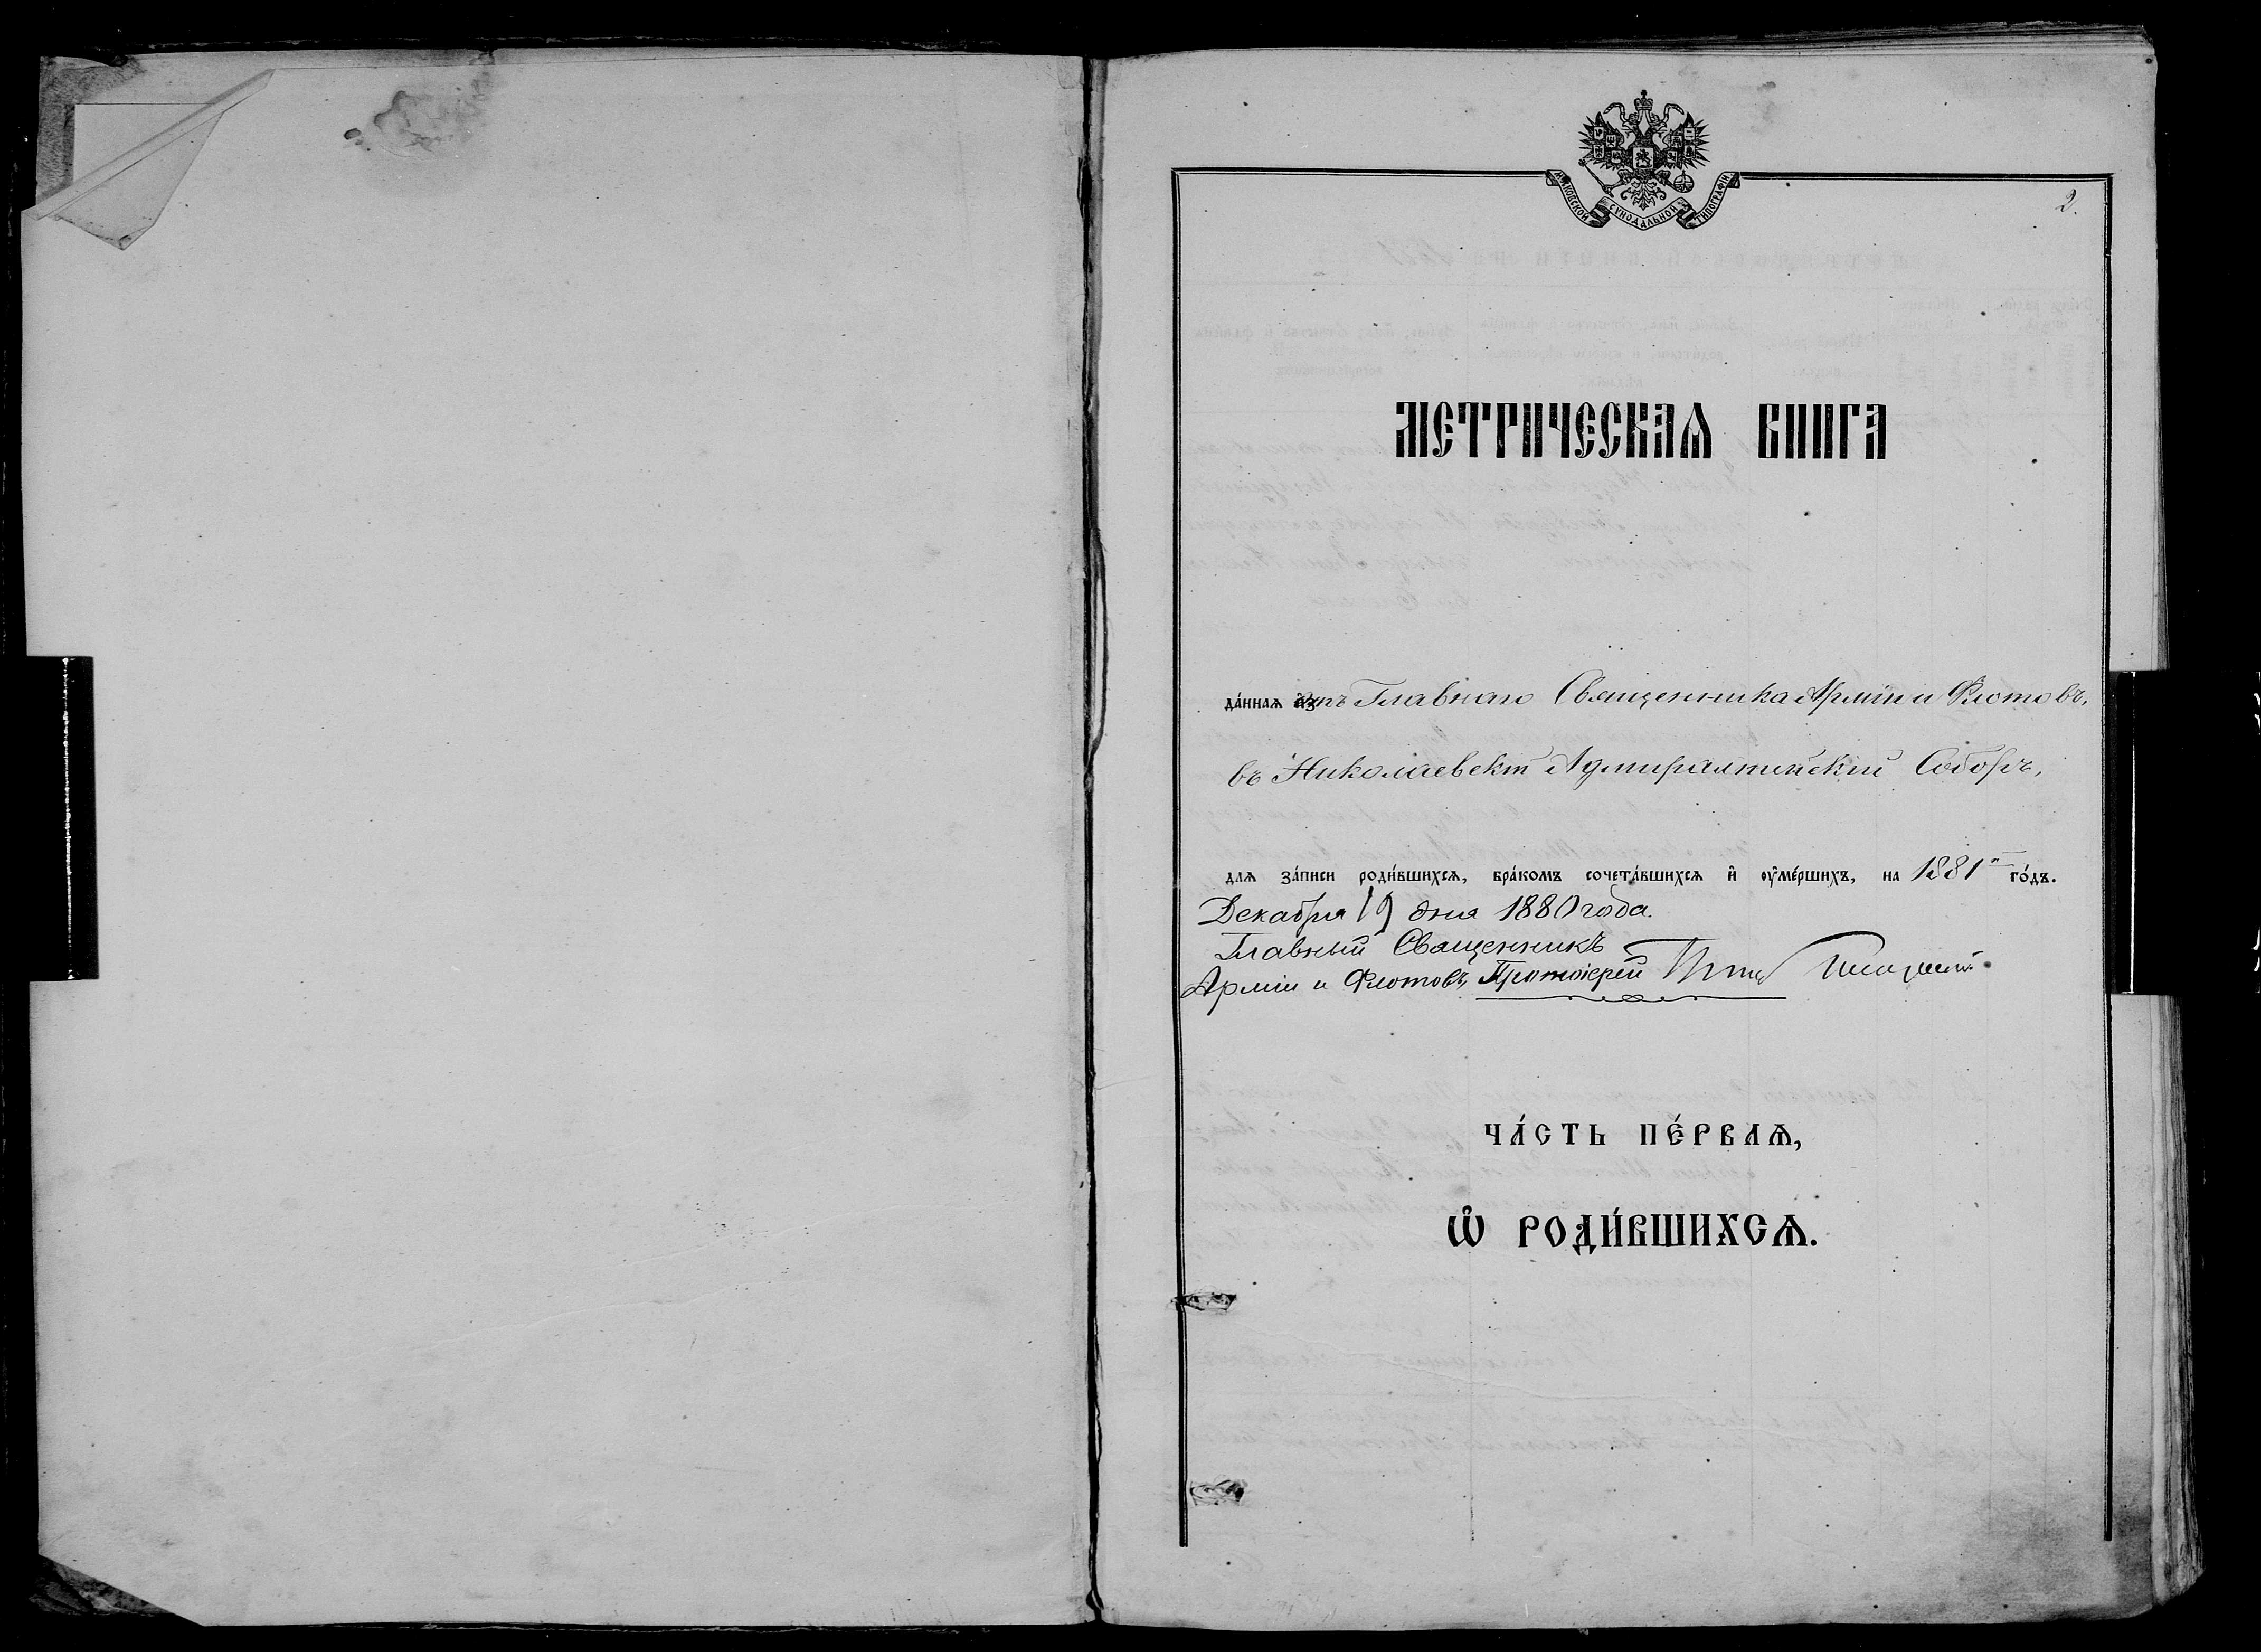 МОСКОВСКОЙ СѴНОДАЛЬНОЙ ТИПОГРАФІИ.
2.
МЕТРИЧЕСКАѦ КНИГА
да́ннаѧ отъ Главнаго Священника Арміи и Флотовъ,
въ Николаевскій Адмиралтейскій Соборъ,
длѧ за́писи роди́вшихсѧ, бра́комъ сочета́вшихсѧ и҆ ᲂу҆ме́ршихъ, на 1881й го́дъ.
Декабря 19 дня 1880 года.
Главный Священникъ
Арміи и Флотовъ, Протоіерей
ЧА́СТЬ ПЕ́РВАѦ,
Ѽ РОДИ́ВШИХСѦ.